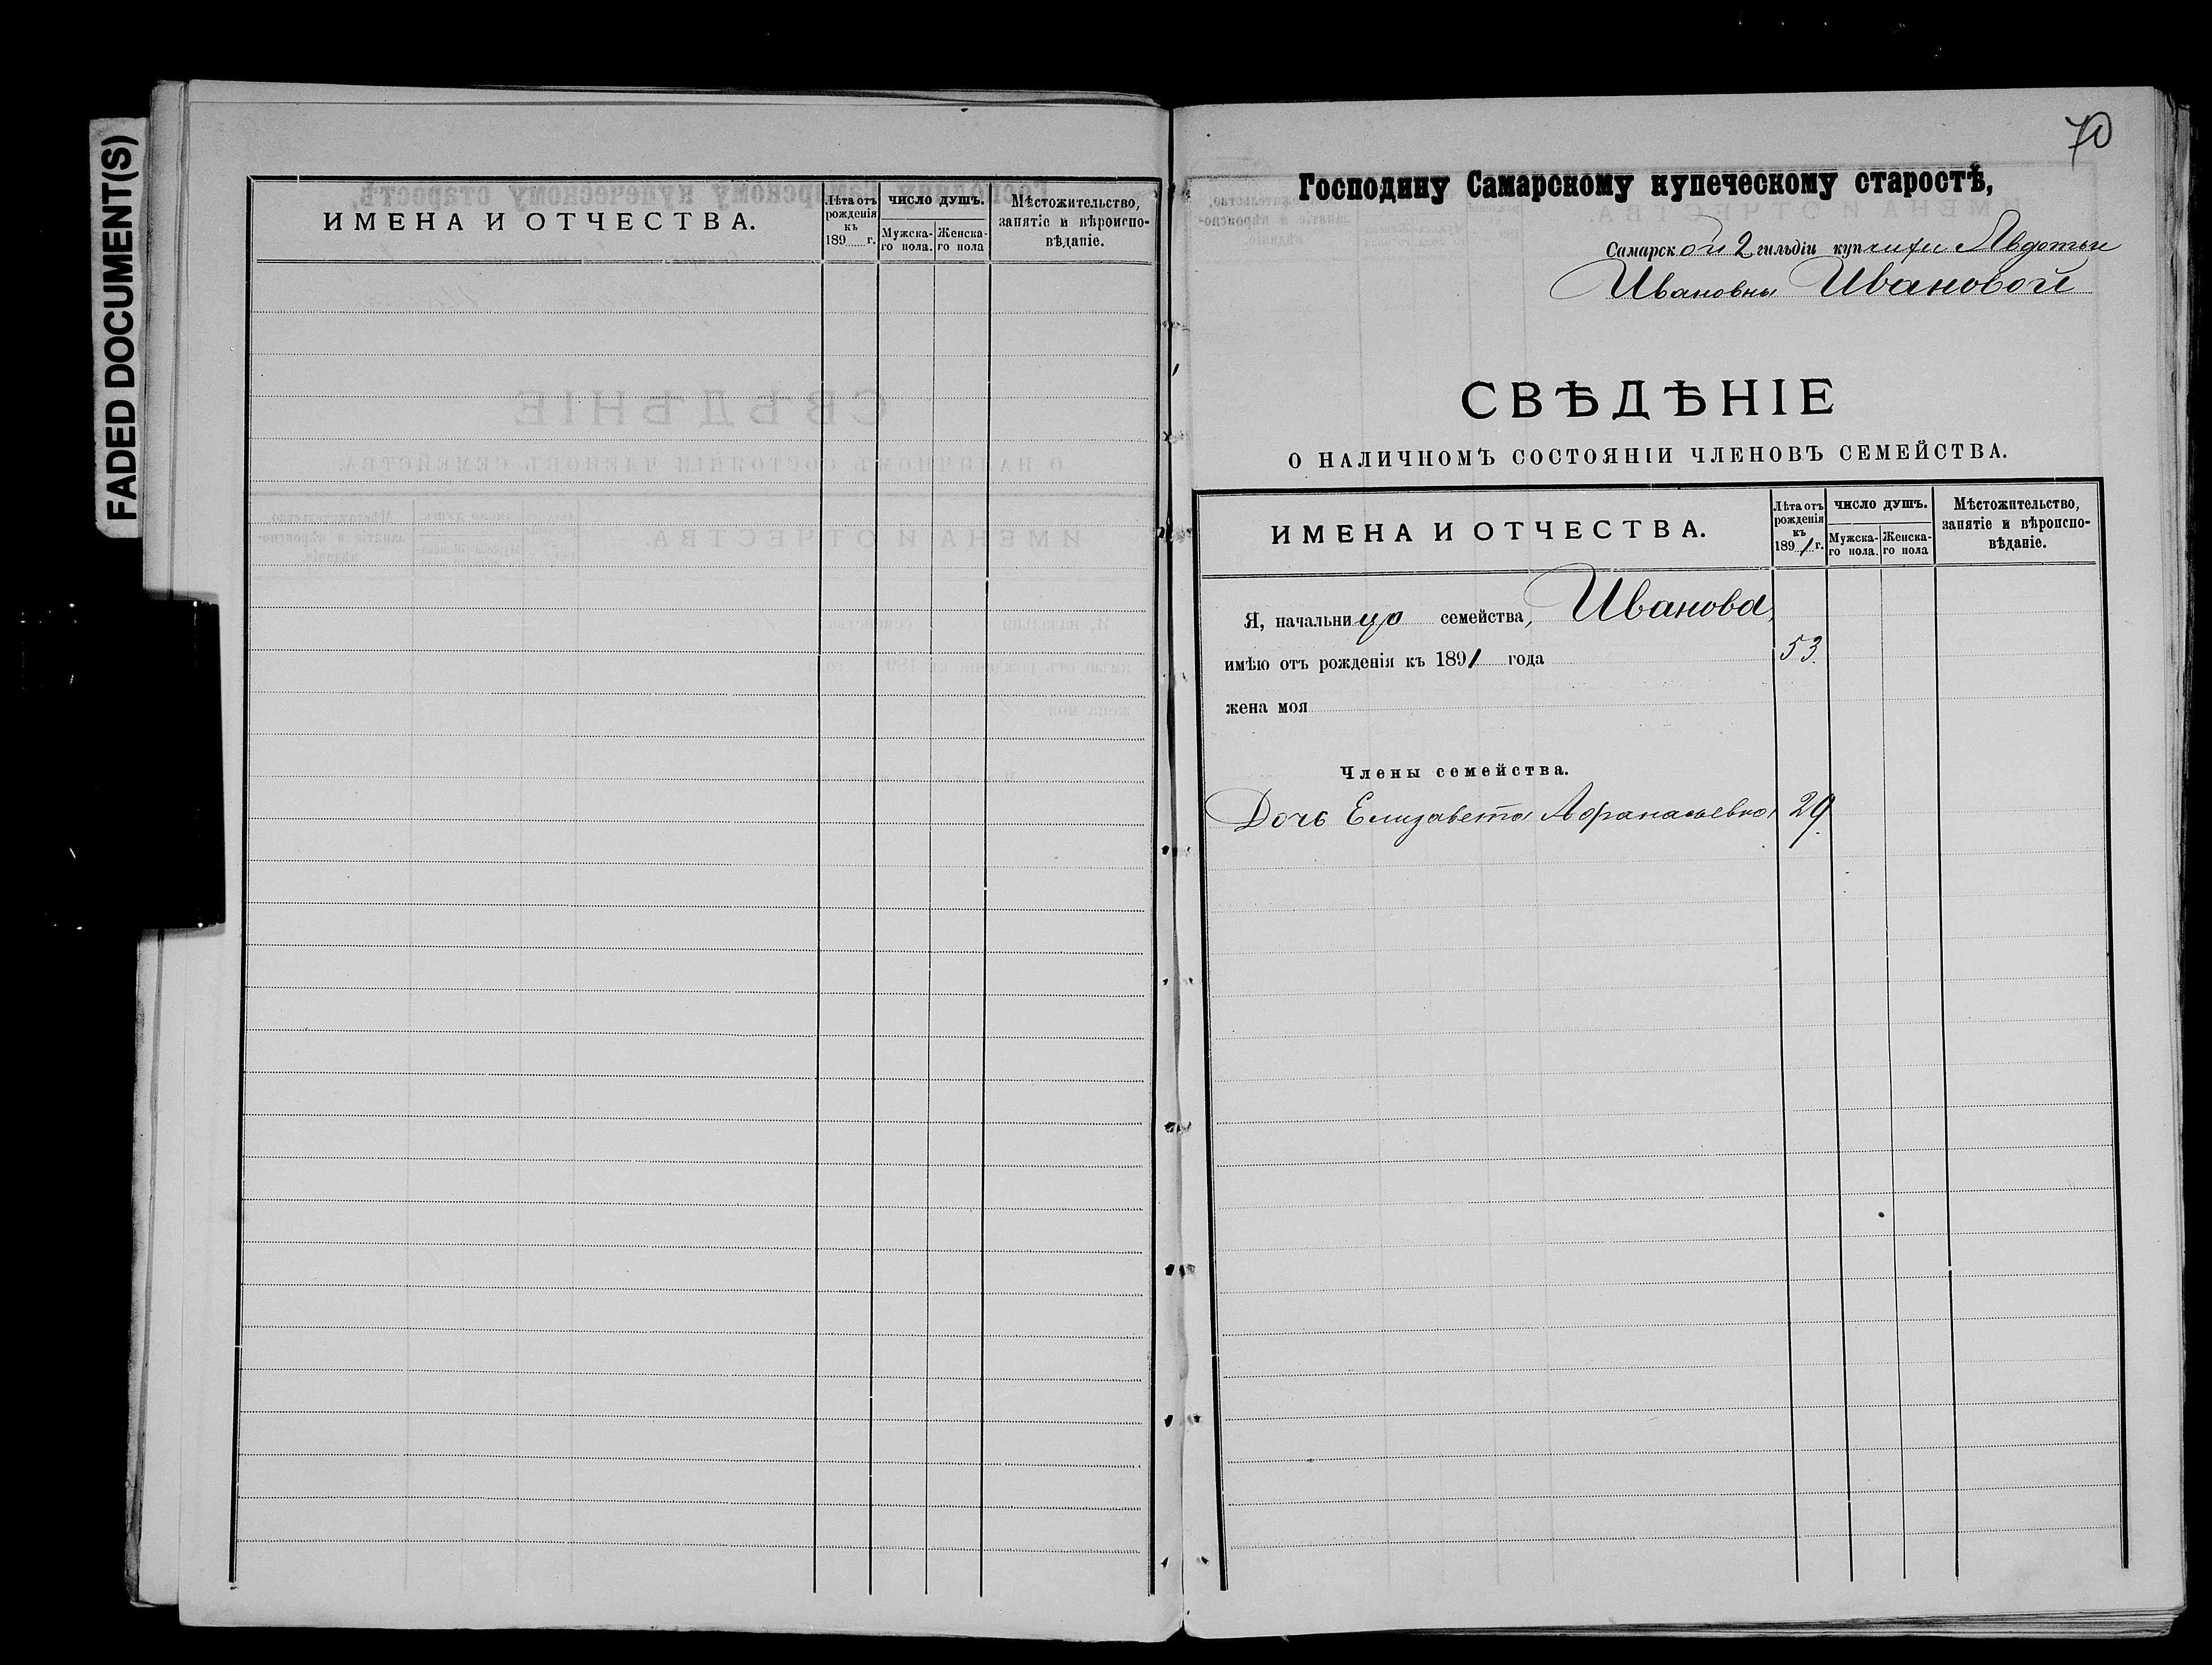 FADED DOCUMENT(S)
ИМЕНА И ОТЧЕСТВА.
Лѣта отъ рожденія къ 189 г.
ЧИСЛО ДУШЪ.
Мужска-го пола.
Женска-го пола
Мѣстожительство,
занятіе и вѣроиспо-
вѣданіе.
70
Господину Самарскому купеческому старостѣ,
Самарской 2 гильдіи купчихи Авдотьи
Ивановны Ивановой
СВѢДѢНІЕ
О НАЛИЧНОМЪ СОСТОЯНІИ ЧЛЕНОВЪ СЕМЕЙСТВА.
ИМЕНА И ОТЧЕСТВА.
Лѣта отъ рожденія къ 1891 г.
ЧИСЛО ДУШЪ.
Мужска-го пола.
Женска-го пола
Мѣстожительство,
занятіе и вѣроиспо-
вѣданіе.
Я, начальница семейства, Иванова,
имѣю отъ рожденія къ 1891 года 53.
жена моя
Члены семейства.
Дочь Елизавета Афанасьевна 29.